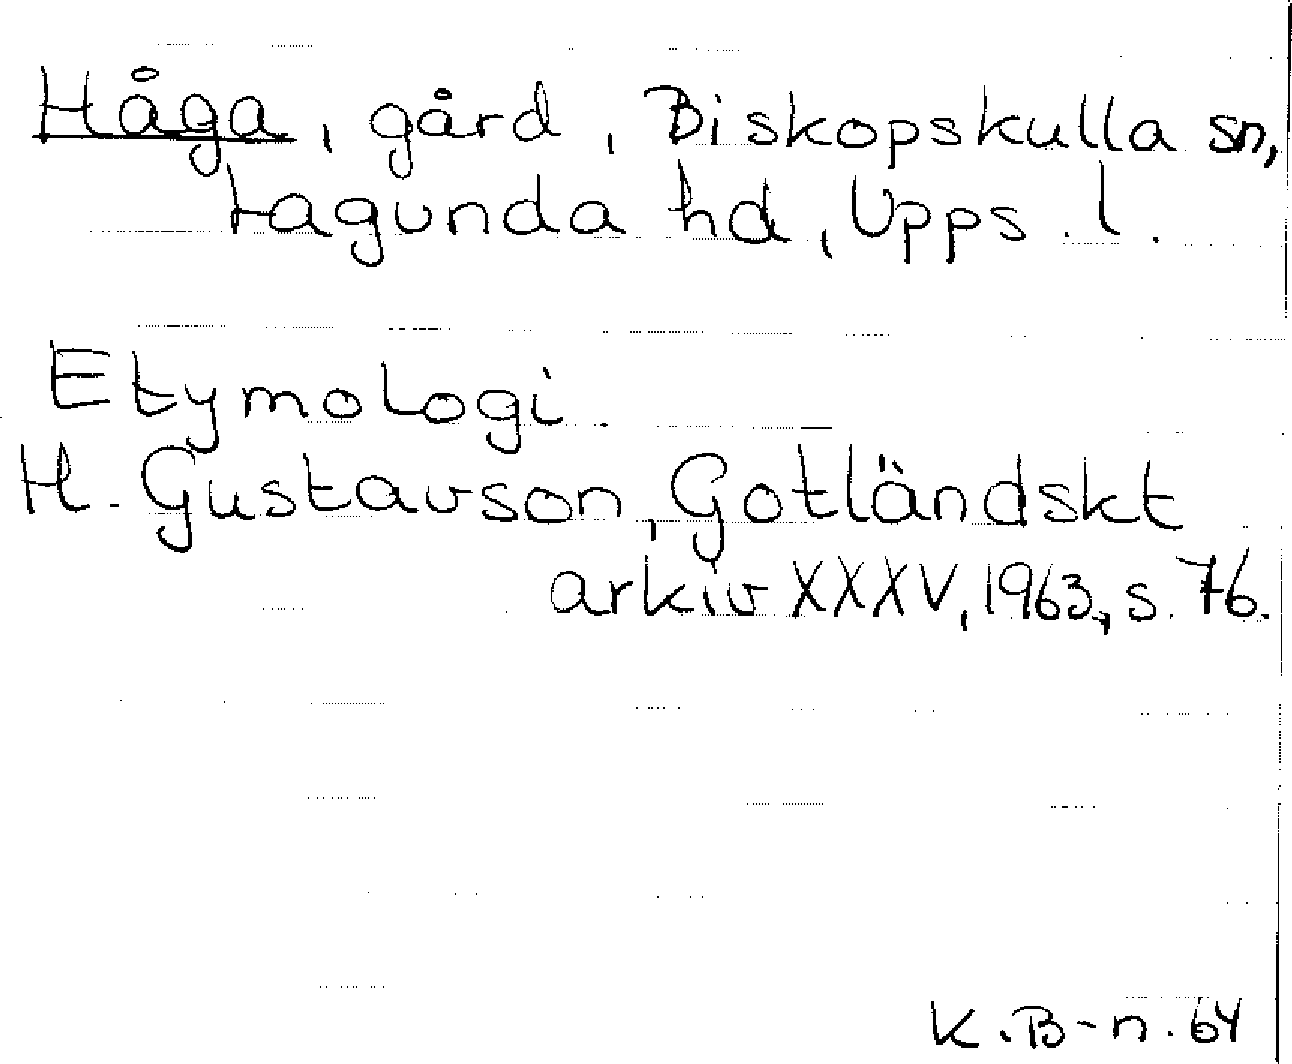 Håga, gård, Biskopskulla sn,
Lagunda hd, Upps. l.
Etymologi.
H. Gustavson, Gotländskt
arkiv XXXV, 1963, s. 76.
K.B-n. 64